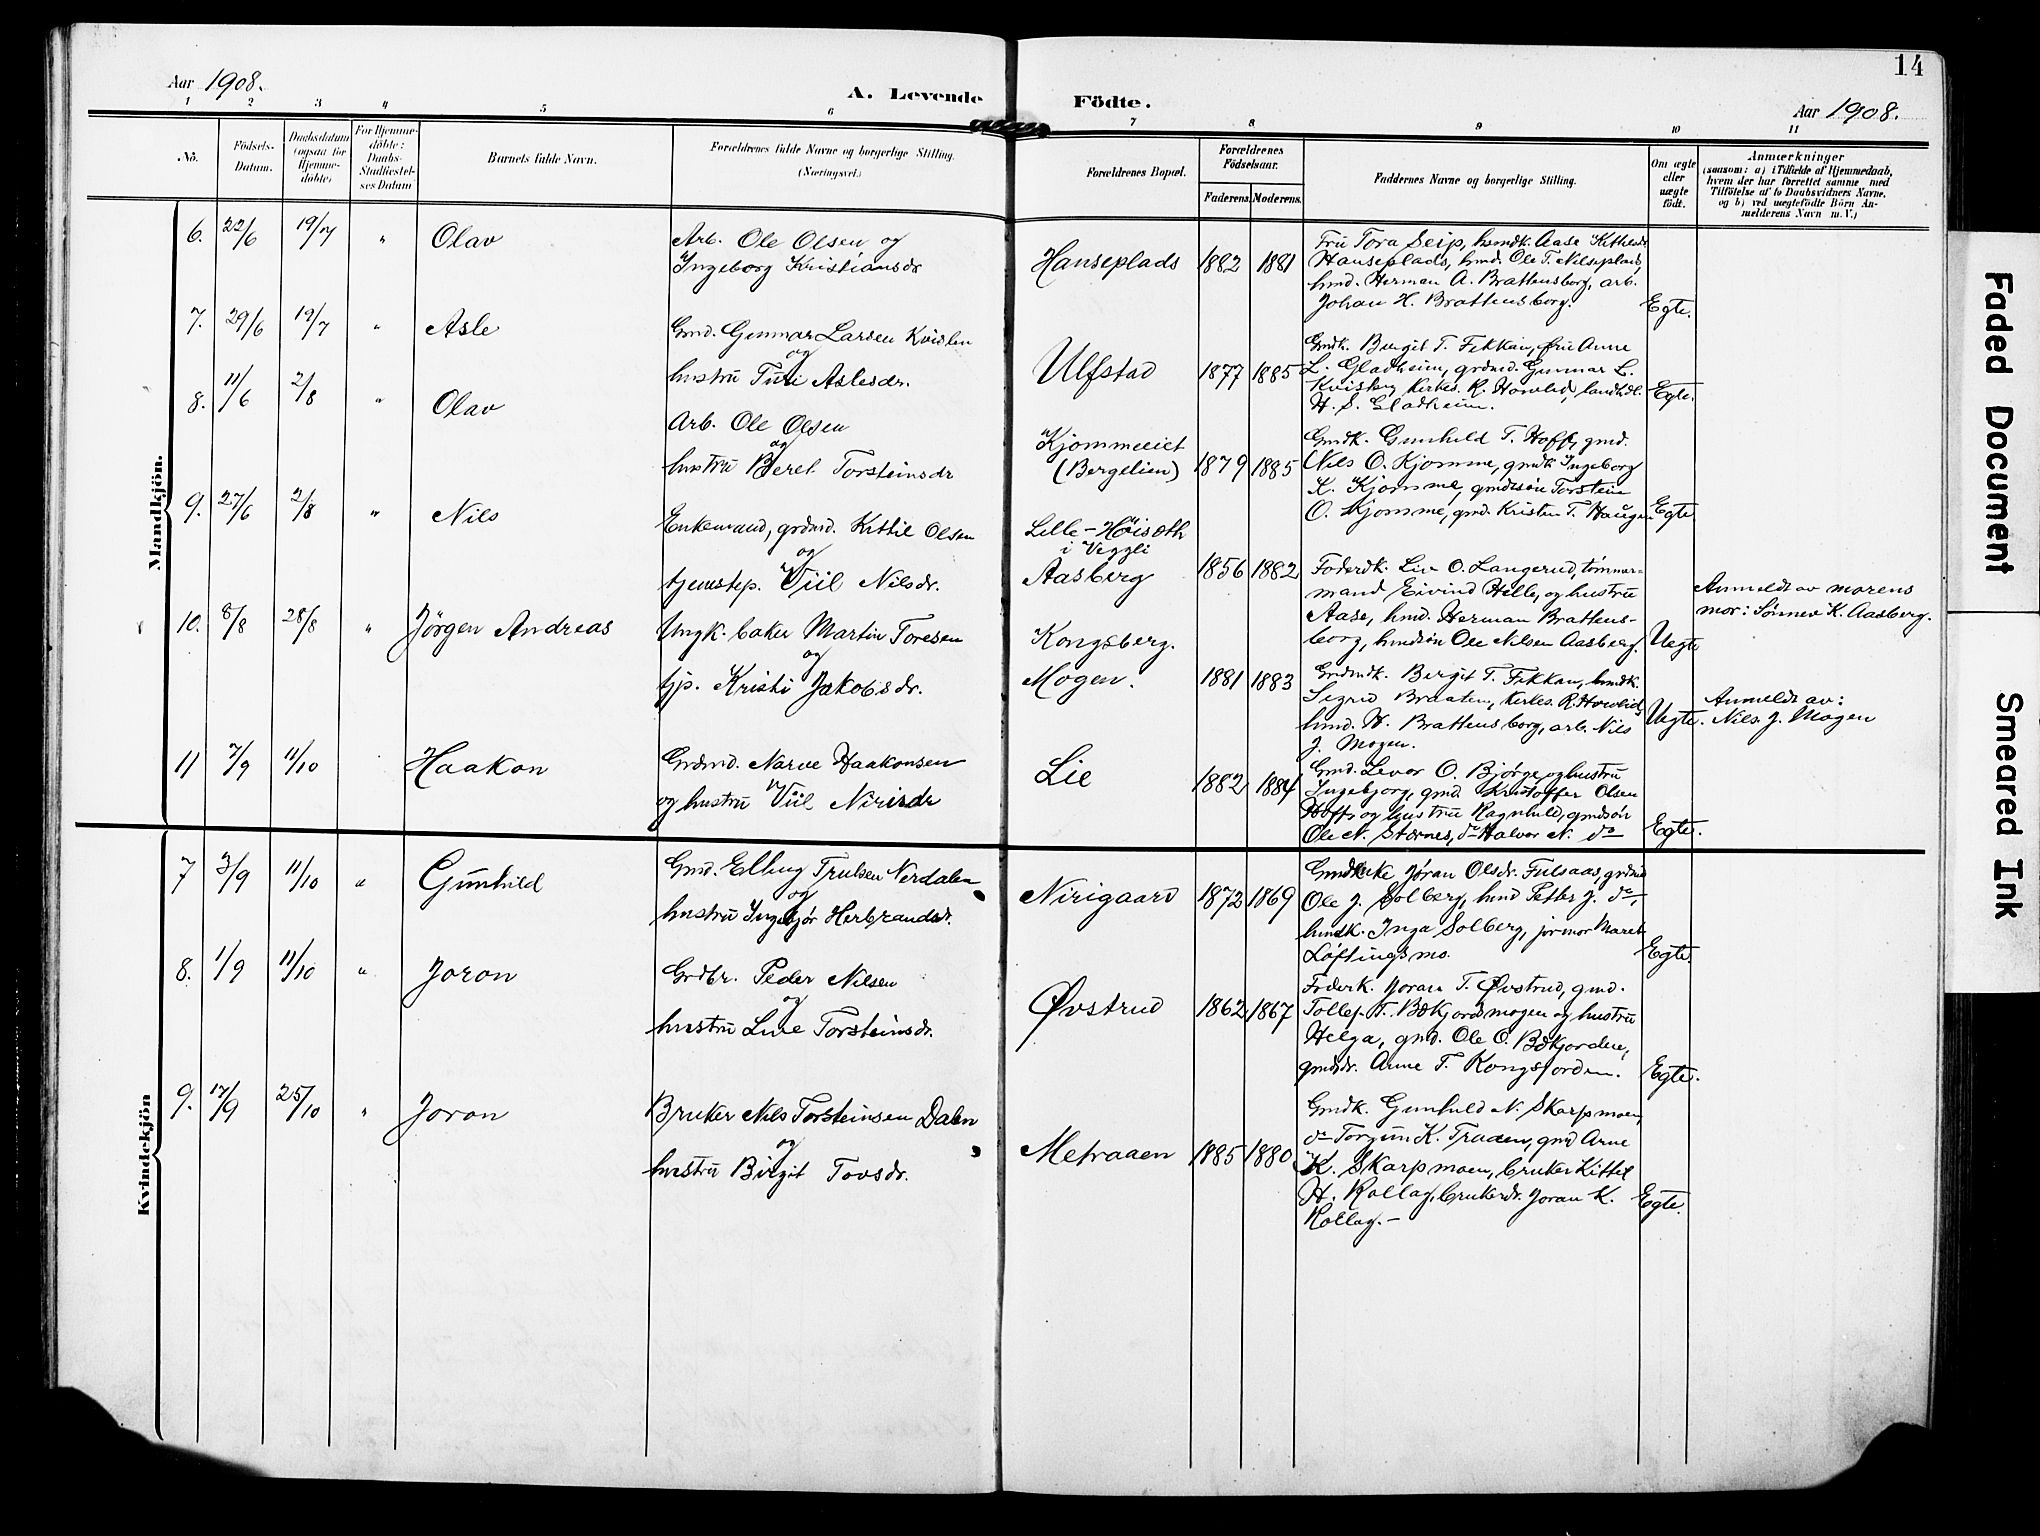 14
Aar 1908.
A. Levende Födte.
Aar 1908.
1 2 3 4 5 6 7 8 9 10 11
No.
Födsels-Datum.
Daabsdatum (ogsaa for Hjemmedöbte)
For Hjemmedöbte: Daabs-Stadfæstelses Datum
Barnets fulde Navn.
Forældrenes fulde Navne og borgerlige Stilling. (Næringsvei.)
Forældrenes Bopæl.
Forældrenes Födselsaar.
Faderens. Moderens.
Faddernes Navne og borgerlige Stilling.
Om ægte eller uægte födt.
Anmærkninger
(saasom: a) i Tilfælde af Hjemmedaab, hvem der har forrettet samme med Tilföielse af to Daabsvidners Navne, og b) ved uægtefödte Börn Anmelderens Navn m. V.)
Mandkjön.
6. 22/6 19/7 " Olav
Arb. Ole Olsen og
Ingeborg Kristiansdr
Hanseplads 1882 1881
Fru Tora Seip, hsmdk. Aase Kittilsdr
Hanseplads, hmd. Ole T. Nilseplads,
hmd. Herman A. Brattensborg, arb.
Johan H. Brattensborg.
Egte.
7. 29/6 19/7 " Asle
Gmd. Gunnar Larsen Kvislen
og
hustru Turi Aslesdr.
Ulfstad 1877 1885
Gmdk. Birgit T. Fekkan, fru Anne
L. Gladheim, grdmd. Gunnar L.
Kvisberg, Kirkes. R. Hovlid, landhdl.
H. S. Gladheim.
Egte.
8. 11/6 2/8 " Olav
Arb. Ole Olsen
og
hustru Beret Torsteinsdr
Kjommeeiet
(Bergelien) 1879 1885
Gmdk. Gunhild T. Hoff, gmd.
Nils O. Kjomme, gmdk Ingeborg
K. Kjomme, gmdssøn Torstein
O. Kjomme, gmd. Kristen T. Haugen
Egte
9. 27/6 2/8 " Nils
Enkemand, grdmd. Kittil Olsen
og
tjenestep. Viil Nilsdr.
Lille-Høiseth
i Veggli
Aasberg 1856 1882
Foderdk. Liv O. Langerud, tømmer-
mand Eivind Helle, og hustru
Aase, hmd. Herman Brattens-
borg, hmdsøn Ole Nilsen Aasberg.
Uegte
Anmeldt av morens
mor: Sønnev K. Aasberg.
10. 8/8 28/8 " Jørgen Andreas
Ungk. baker Martin Toresen
og
tjp. Kristi Jakobsdr.
Kongsberg.
Mogen. 1881 1883
Grdmdk. Birgit T. Fekkan, hmdk.
Sigrid Braaten, Kirkes. R. Hovlid,
hmd. H. Brattensborg, arb. Nils
J. Mogen.
Uegte.
Anmeldt av:
Nils J. Mogen
11 7/9 11/10 Haakon
Grdmd. Narve Haakonsen
og hustru Viil Nirisdr
Lie 1882 1884
Gmd. Levor O. Bjørge, og hustru
Ingebjorg, gmd. Kristoffer Olsen
Hoff, og hustru Ragnhild, gmdsøn
Ole N. Stærnes, do Halvor N. do
Egte.
Kvindekjön
7 3/9 11/10 " Gunhild
Gmd. Elling Trulsen Nerdalen
og
hustru Ingebjør Herbrandsdr.
Nirigaard 1872 1869
Gmdenke Jøran Olsdr. Fulsaas, grdmd
Ole J. Solberg, hmd Petter J. do,
hmdk. Inga Solberg, jormor Maret
Løftingsmo.
Egte.
8. 1/9 11/10 " Joron
Grdbr. Peder Nilsen
og
hustru Live Torsteinsdr.
Øvstrud 1862 1867
Foderk. Joran T. Øvstrud, gmd.
Tollef T. Bækjordsmogen og hustru
Helga, gmd. Ole O. Bækjorden,
gmdsdr. Anne T. Kongsjorden.
Egte.
9. 17/9 25/10 " Joron
Bruker Nils Torsteinsen Dalen
og
hustru Birgit Tovsdr.
Metraaen 1885 1880
Gmdk. Gunhild N. Skarpmoen,
do Torgun K. Traaen, gmd Arne
K. Skarpmoen, bruker Kittil
H. Rollag, brukerdr. Joran K.
Rollag.-
Egte.
Faded Document
Smeared Ink